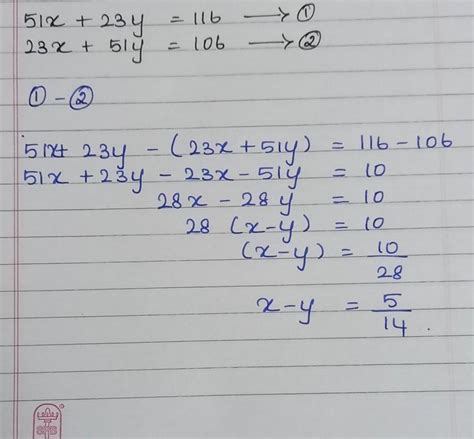 51x + 23y = 116 → ①
23x + 51y = 106 → ②
① - ②
51x + 23y - (23x + 51y) = 116 - 106
51x + 23y - 23x - 51y = 10
28x - 28y = 10
28 (x-y) = 10
(x-y) = 10/28
x-y = 5/14.